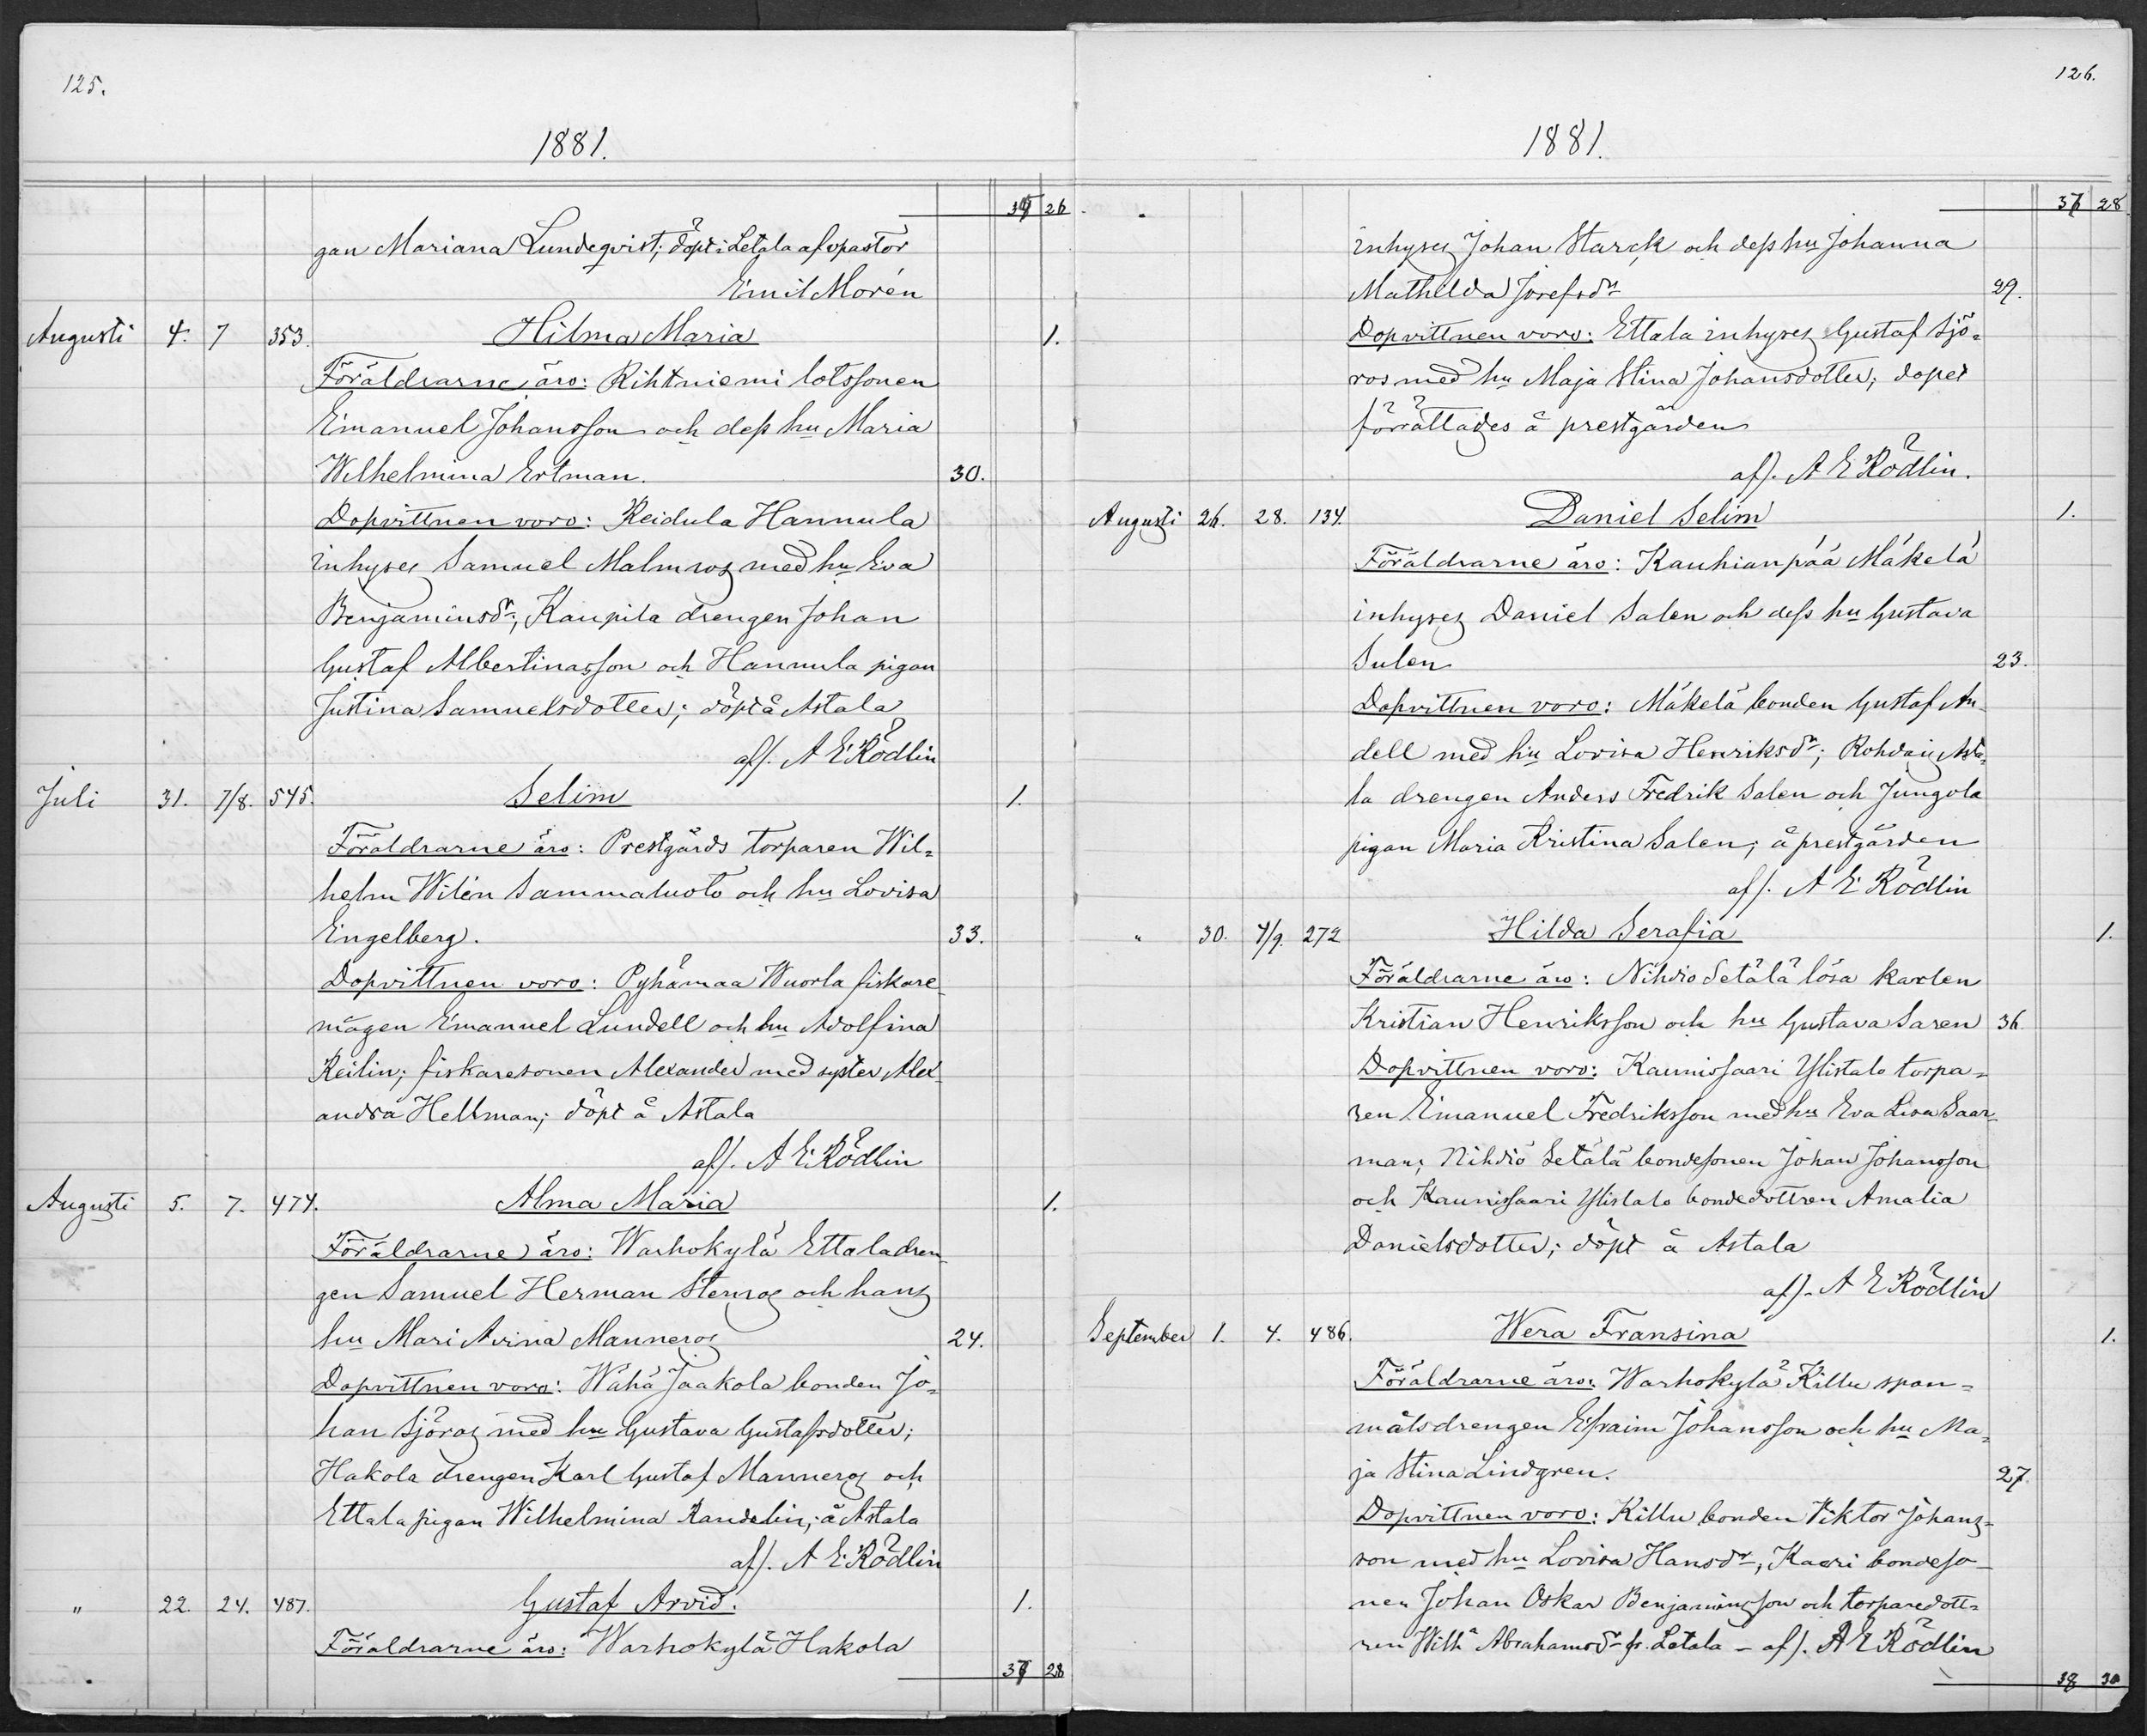 125.
1881.
34 26
gan Mariana Lundeqvist; döpt i Letala af vpastor
Emil Morén
Augusti 4. 7 353. Hilma Maria 1.
Föräldrarne äro: Rihtniemi lotssonen
Emanuel Johansson och dess hu Maria
Wilhelmina Ertman. 30.
Dopvittnen voro: Reidula Hannula
inhyses Samuel Malmros med hu Eva
Benjaminsdr; Kaupila drengen Johan
Gustaf Albertinasson och Hannula pigan
Justina Samuelsdotter; döpt å Astala
af/. A E Rödlin
Juli 31. 7/8. 545. Selim 1.
Föräldrarne äro: Prestgårds torparen Wil-
helm Wilén Sammaluoto och hu Lovisa
Engelberg. 33.
Dopvittnen voro: Pyhämaa Wuorla fiskare
mågen Emanuel Lundell och hu Adolfina
Reilin; fiskaresonen Alexander med syster Alex-
andra Hellman; döpt å Astala
af/. A E Rödlin
Augusti 5. 7. 474. Alma Maria 1.
Föräldrarne äro: Warhokylä Ettala dren
gen Samuel Herman Stenros och hans
hu Mari Avina Manneros 24.
Dopvittnen voro: Wähä Jaakola bonden Jo-
han Sjöros med hu Gustava Gustafsdotter;
Hakola drengen Karl Gustaf Manneros och
Ettala pigan Wilhelmina Randelin; å Astala
af/. A E Rödlin
" 22. 24. 487. Gustaf Arvid. 1.
Föräldrarne äro: Warhokylä Hakola
37 28
126.
1881.
37 28
inhyses Johan Starck och dess hu Johanna
Mathilda Josefsdr 29.
Dopvittnen voro: Ettala inhyses Gustaf Sjö-
ros med hu Maja Stina Johansdotter; dopet
förrättades å prestgården
af/. A E Rödlin.
Augusti 26. 28. 134. Daniel Selim 1.
Föräldrarne äro: Kauhianpää Mäkelä
inhyses Daniel Salen och dess hu Gustava
Sulen 23.
Dopvittnen voro: Mäkelä bonden Gustaf An
dell med hu Lovisa Henriksdr; Rohdais Asta-
la drengen Anders Fredrik Salen och Jungola
pigan Maria Kristina Salen; å prestgården
af/. A E Rödlin
" 30. 4/9. 272 Hilda Serafia 1.
Föräldrarne äro: Nihdiö Setälä lösa karlen
Kristian Henriksson och hu Gustava Saren 36.
Dopvittnen voro: Kaunissaari Ylistalo torpa-
ren Emanuel Fredriksson med hu Eva Lisa Saar-
man; Nihdiö Setälä bondesonen Johan Johansson
och Kaunissaari Ylistalo bondedottren Amalia
Danielsdotter; döpt å Astala
af/. A E Rödlin
September 1. 4. 486. Wera Fransina 1.
Föräldrarne äro: Warhokylä Killu span-
målsdrengen Efraim Johansson och hu Ma-
ja Stina Lindgren. 27.
Dopvittnen voro: Killu bonden Viktor Johans-
son med hu Lovisa Hansdr; Kaari bondeso-
nen Johan Oskar Benjaminsson och torparedott-
ren Wilha Abrahamsdr fr. Letala - af/. A E Rödlin
38 30